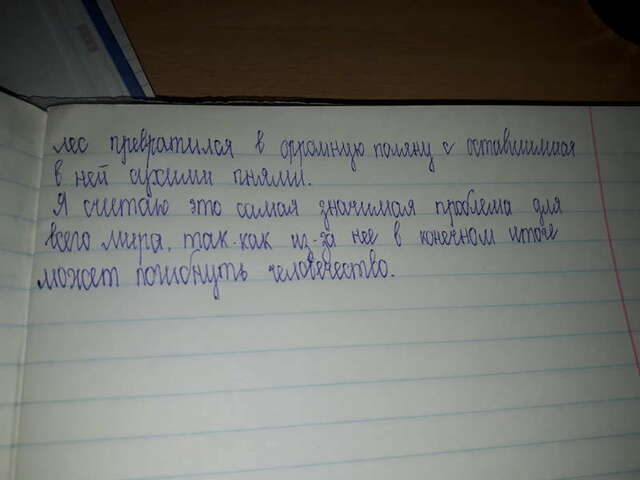 лес превратился в огромную поляну с оставшимися
в ней сухими пнями.
Я считаю это самая значимая проблема для
всего мира, так-как из-за нее в конечном итоге
может погибнуть человечество.